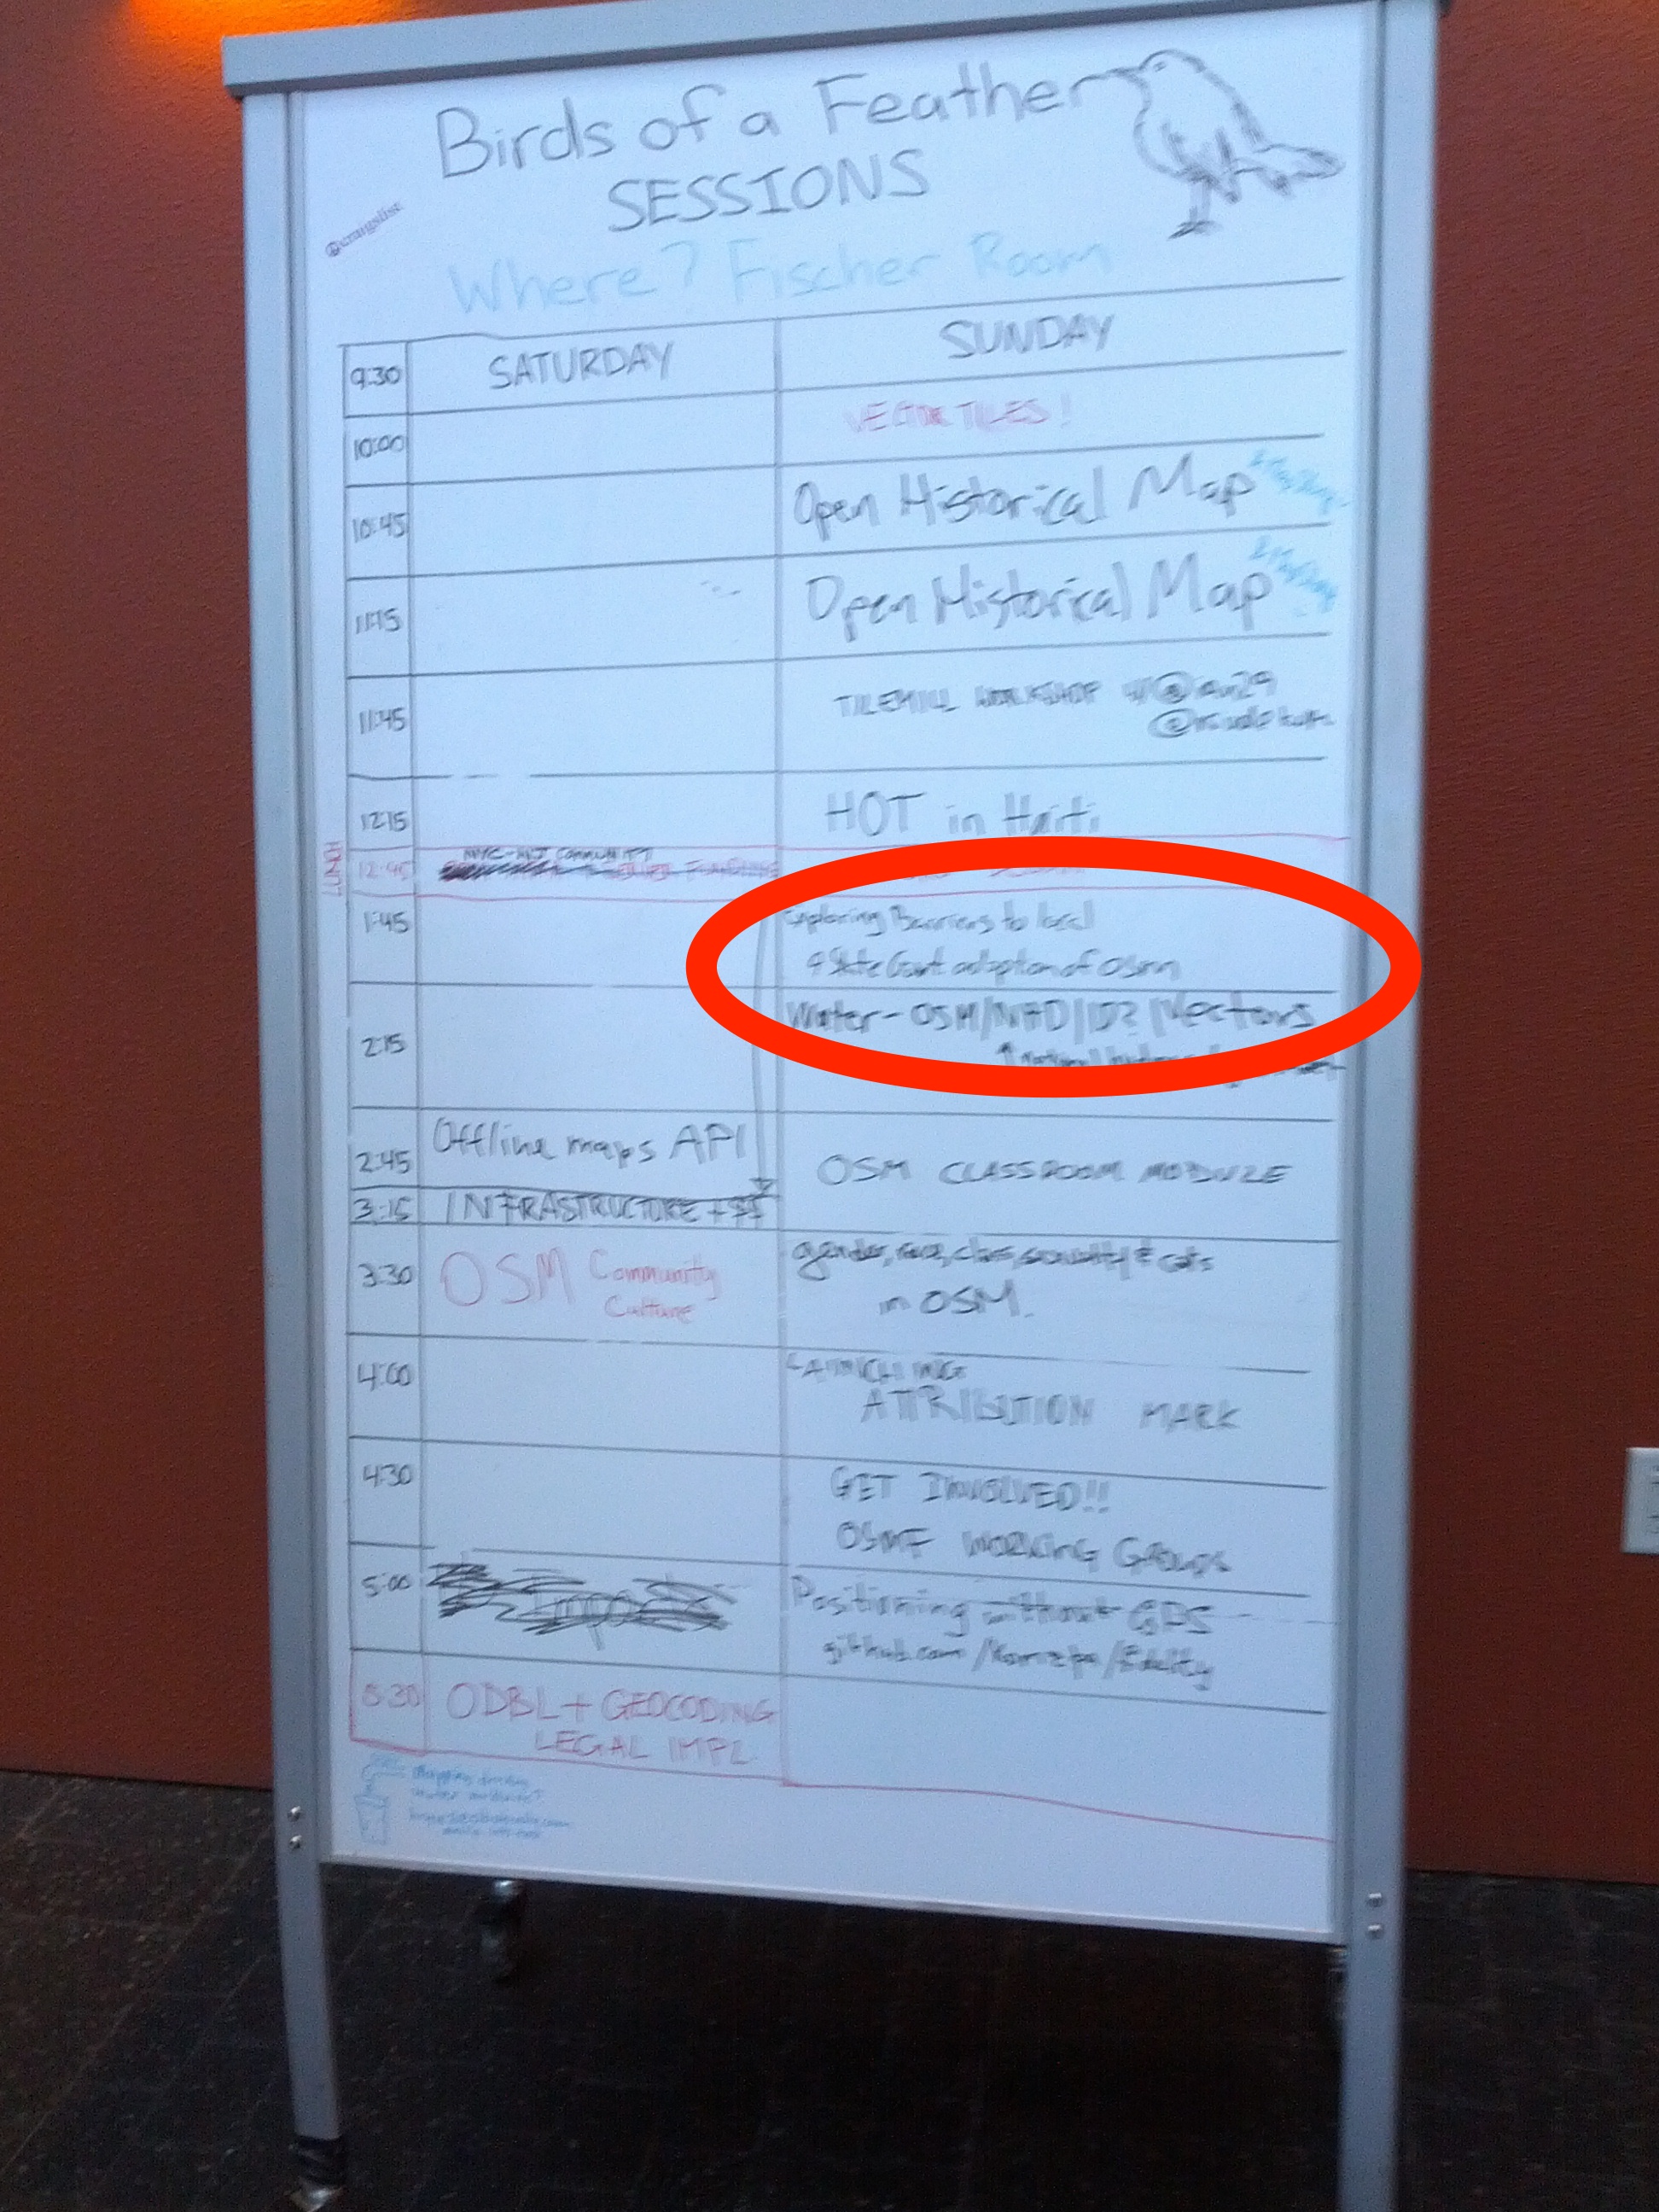 Birds of a Feather
SESSIONS
craigslist
Where? Fischer Room
9:30 SATURDAY SUNDAY
VECTOR TILES!
10:00
10:45 Open Historical Map
11:15 Open Historical Map
11:45 TILEMILL WORKSHOP W/
12:15 HOT in Haiti
LUNCH
NYC-NJ COMMUNITY
12:45
1:45 Exploring Barriers to local
& State Govt adoption of OSM
Water - OSM/NHD/ID?/Vectors
2:15
Offline maps API
2:45 OSM CLASSROOM MODULE
3:15 INFRASTRUCTURE + $$
gender, race, class, sexuality & cats
3:30 OSM Community
Culture
in OSM.
4:00 LAUNCHING
ATTRIBUTION MARK
4:30 GET INVOLVED!!
OSMF WORKING GROUPS
5:00 Imports Positioning without GPS
github.com/
5:30 ODBL + GEOCODING
LEGAL IMPL.
Mapping drinking
water